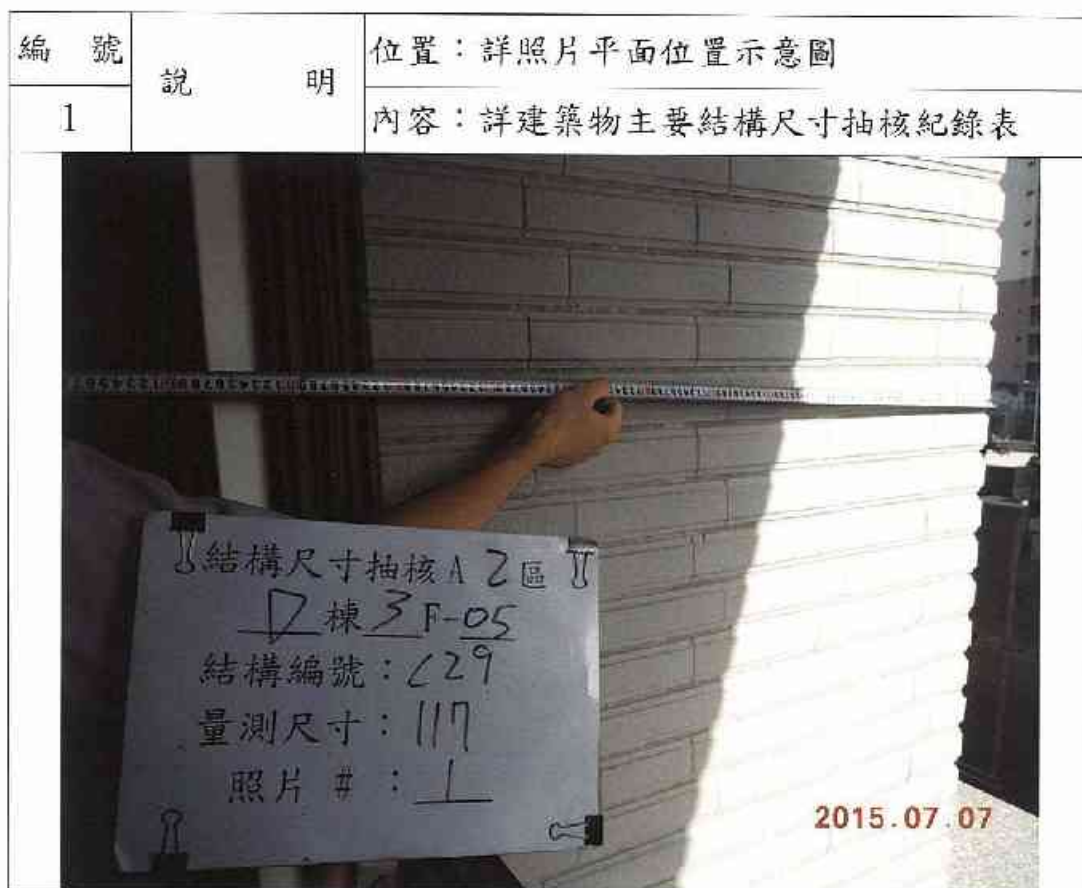 編 號
1
說 明
位置：詳照片平面位置示意圖
內容：詳建築物主要結構尺寸抽核紀錄表
結構尺寸抽核A 2區
D棟3F-05
結構編號：C29
量測尺寸：117
照片 #：1
2015.07.07